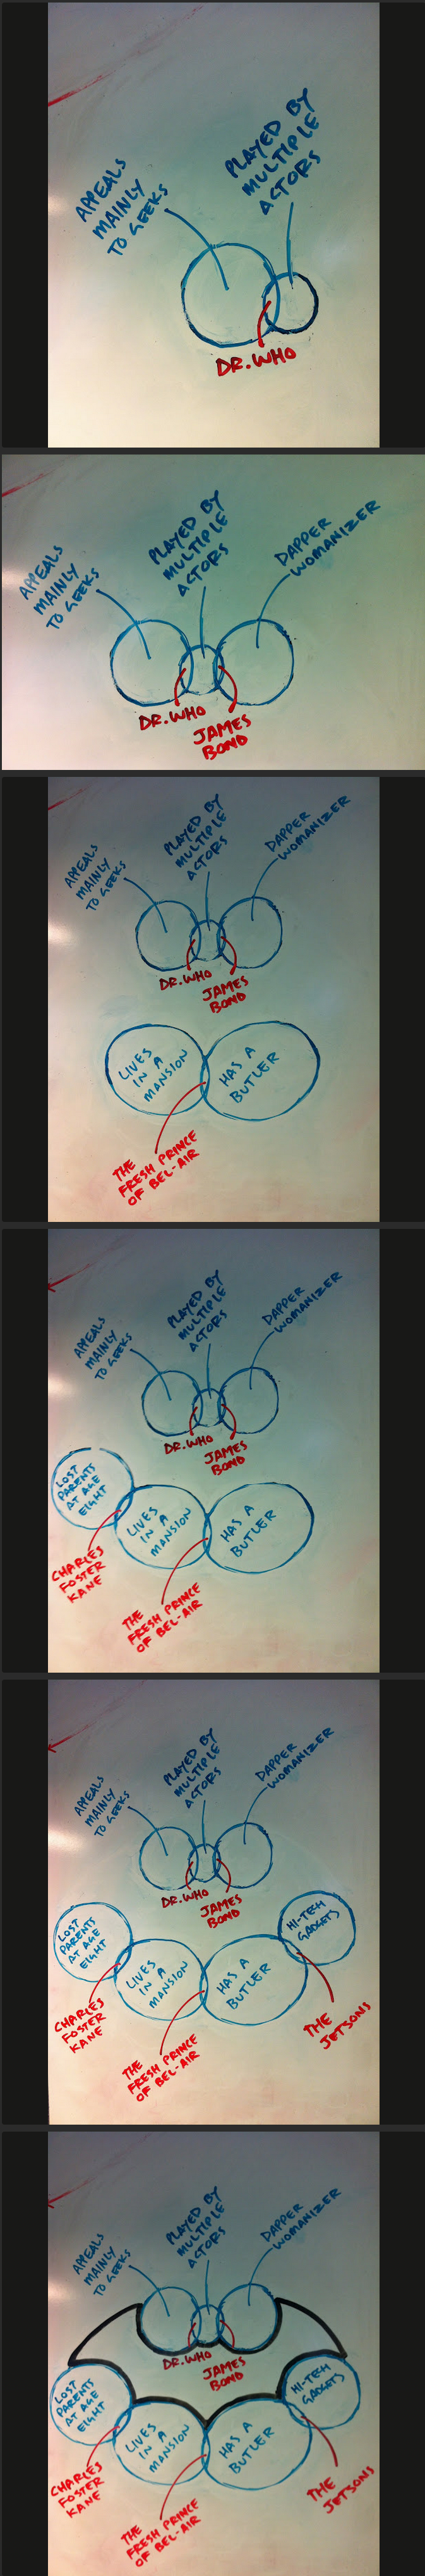 APPEALS
MAINLY
TO GEEKS
PLAYED BY
MULTIPLE
ACTORS
DR. WHO
APPEALS
MAINLY
TO GEEKS
PLAYED BY
MULTIPLE
ACTORS
DAPPER
WOMANIZER
DR. WHO
JAMES
BOND
APPEALS
MAINLY
TO GEEKS
PLAYED BY
MULTIPLE
ACTORS
DAPPER
WOMANIZER
DR. WHO
JAMES
BOND
LIVES
IN A
MANSION
HAS A
BUTLER
THE
FRESH PRINCE
OF BEL-AIR
APPEALS
MAINLY
TO GEEKS
PLAYED BY
MULTIPLE
ACTORS
DAPPER
WOMANIZER
DR. WHO
JAMES
BOND
LOST
PARENTS
AT AGE
EIGHT
LIVES
IN A
MANSION
HAS A
BUTLER
CHARLES
FOSTER
KANE
THE
FRESH PRINCE
OF BEL-AIR
APPEALS
MAINLY
TO GEEKS
PLAYED BY
MULTIPLE
ACTORS
DAPPER
WOMANIZER
DR. WHO
JAMES
BOND
LOST
PARENTS
AT AGE
EIGHT
LIVES
IN A
MANSION
HAS A
BUTLER
HI-TECH
GADGETS
CHARLES
FOSTER
KANE
THE
FRESH PRINCE
OF BEL-AIR
THE
JETSONS
APPEALS
MAINLY
TO GEEKS
PLAYED BY
MULTIPLE
ACTORS
DAPPER
WOMANIZER
DR. WHO
JAMES
BOND
LOST
PARENTS
AT AGE
EIGHT
LIVES
IN A
MANSION
HAS A
BUTLER
HI-TECH
GADGETS
CHARLES
FOSTER
KANE
THE
FRESH PRINCE
OF BEL-AIR
THE
JETSONS